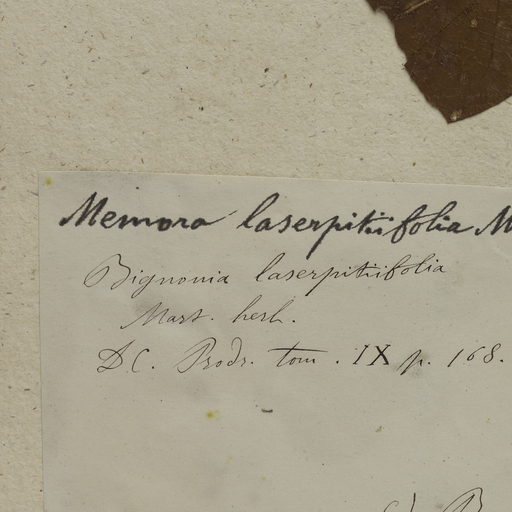 Memora laserpitiifolia M
Bignonia laserpitiifolia
Mart. herb.
DC. Prodr. tom. IX p. 168.